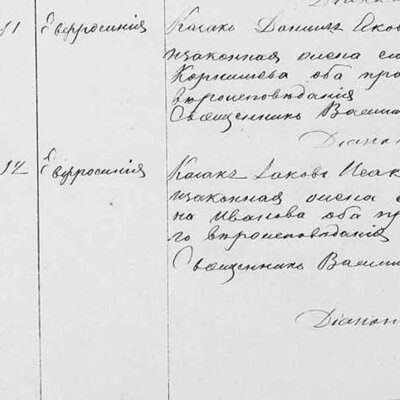 Діакон
11 Евфросинія Казакъ Даніилъ Яков
изаконная жена е
Корнилиева оба пра
вероисповѣданія
Священникъ Васили
Діакон
12 Евфросинія Казакъ Іаковъ Исак
изаконная жена е
на Иванова оба пр
го вѣроисповѣданія
Священникъ Васили
Діакон